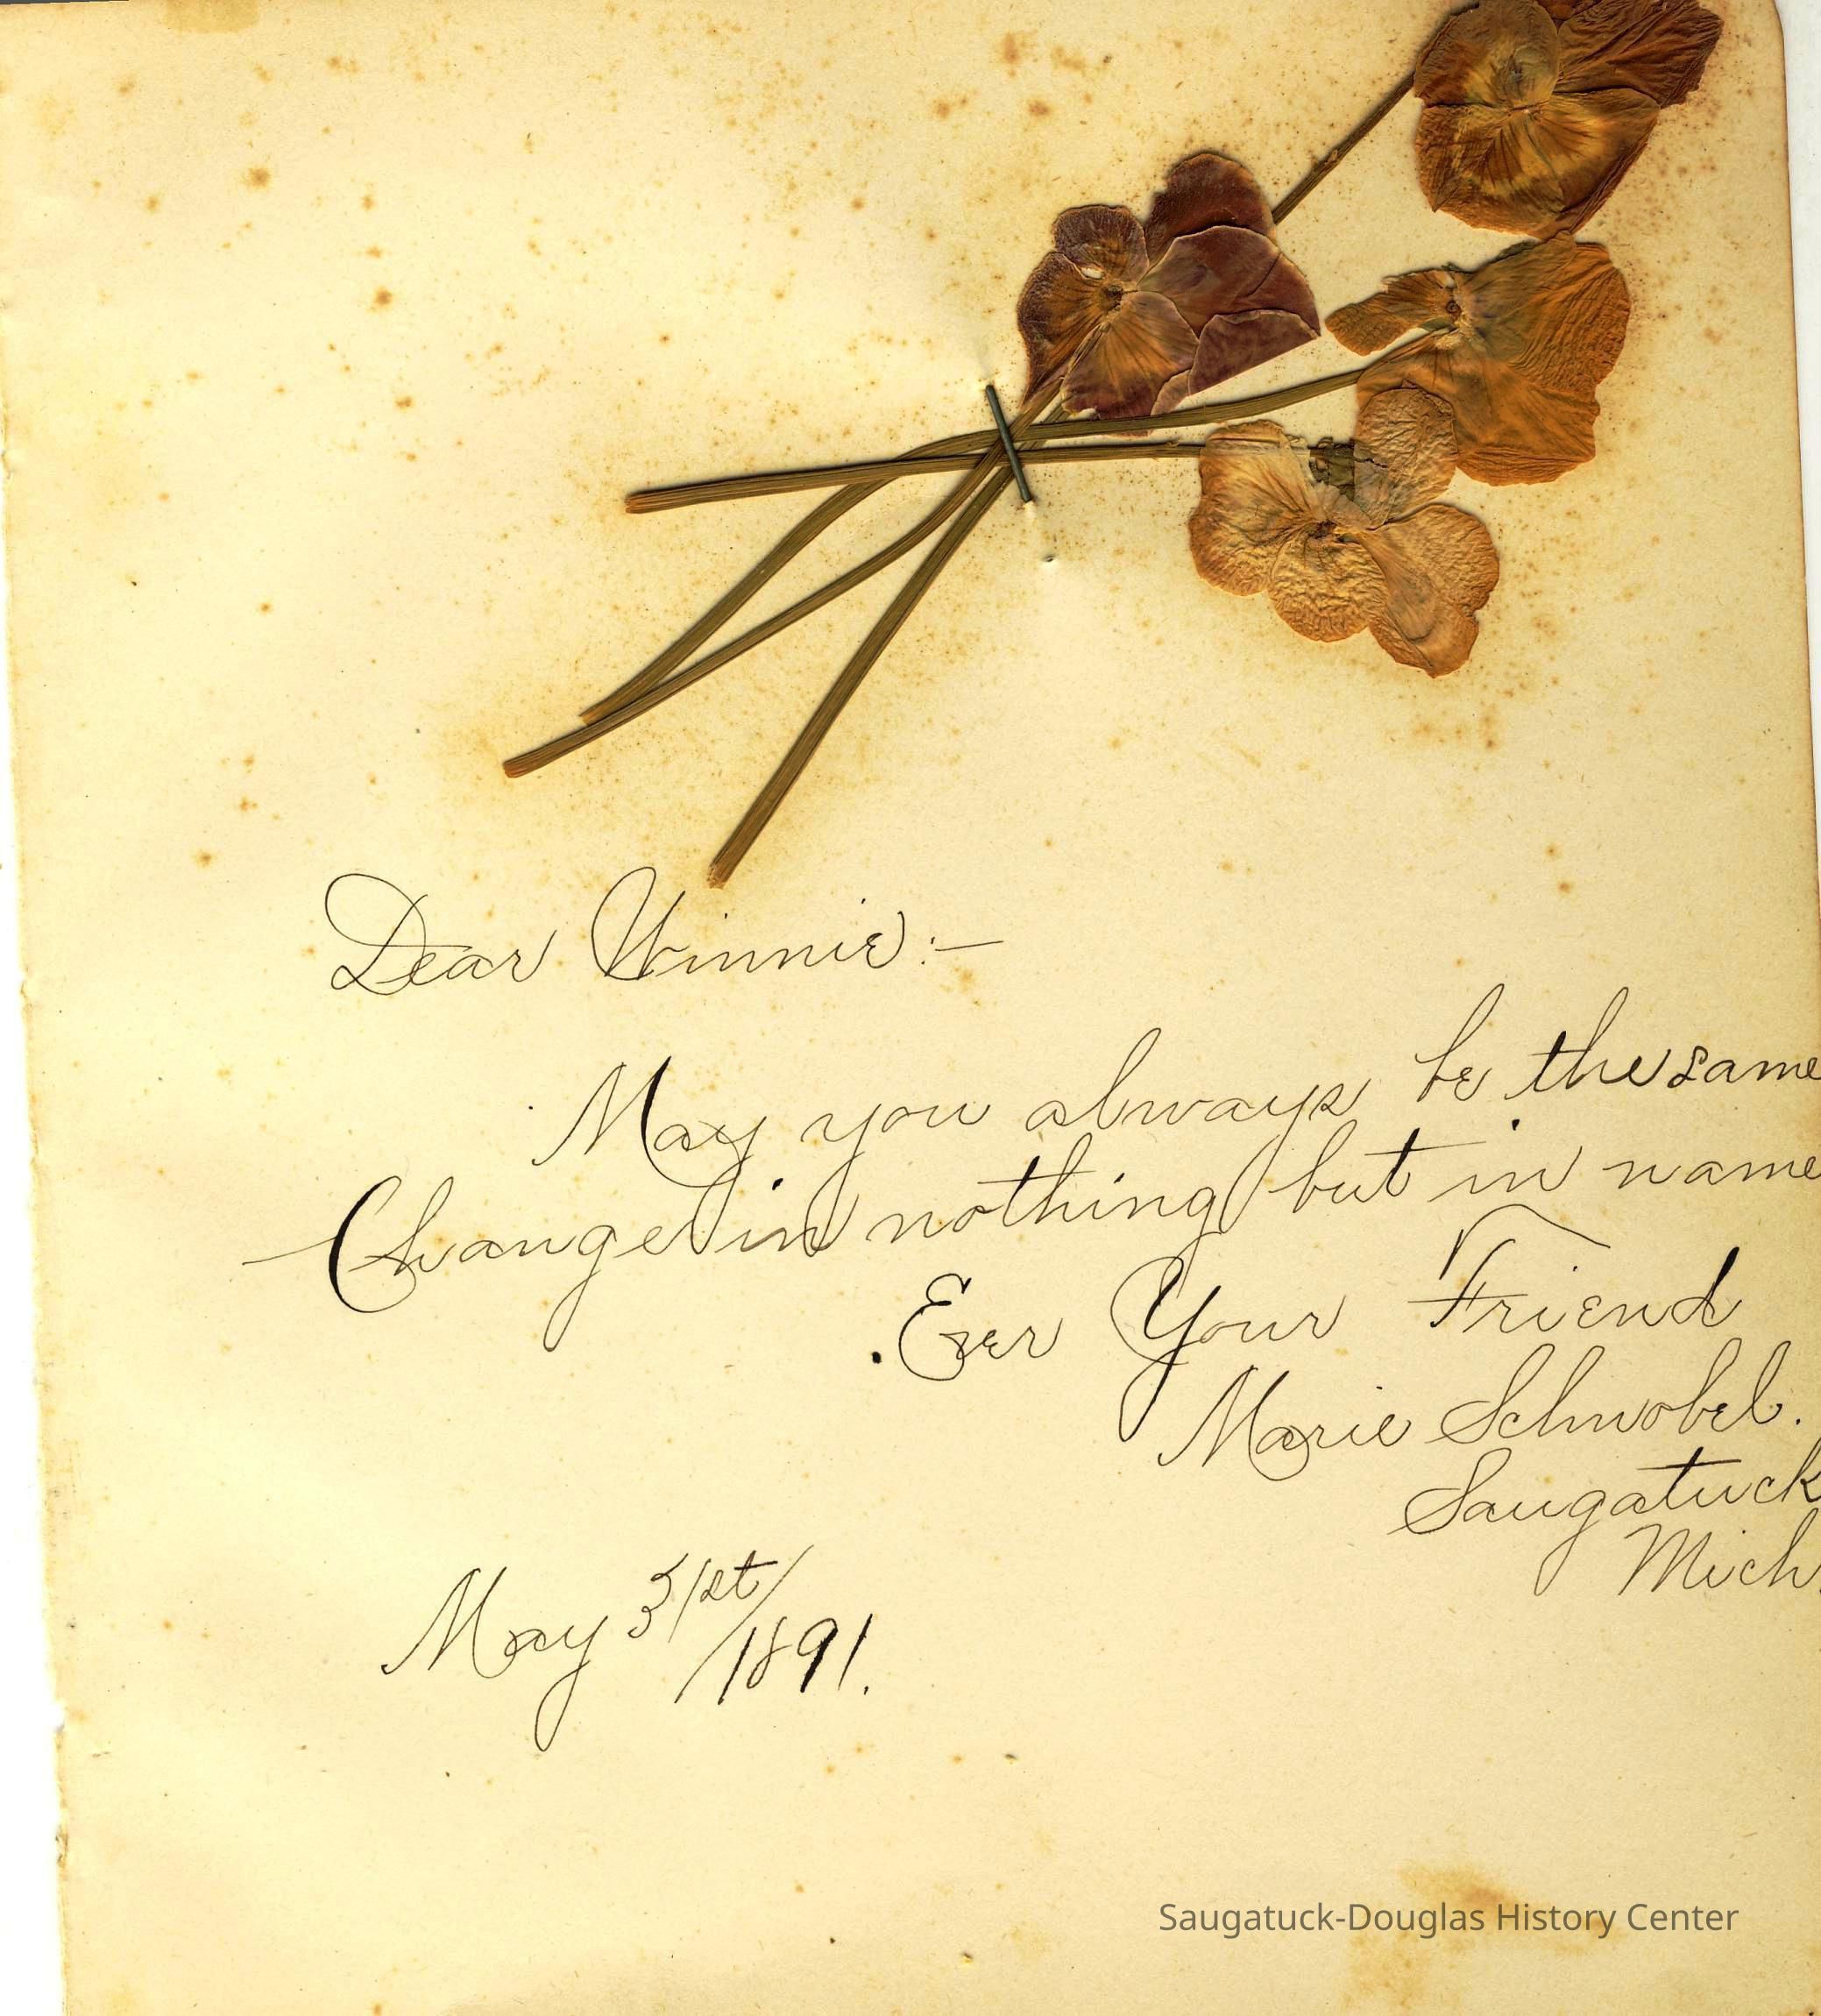 Dear Winnie:—
May you always be the same
Change in nothing but in name
Ever Your Friend
Marie Schnobel.
Saugatuck
Mich.
May 31st/1891.
Saugatuck-Douglas History Center